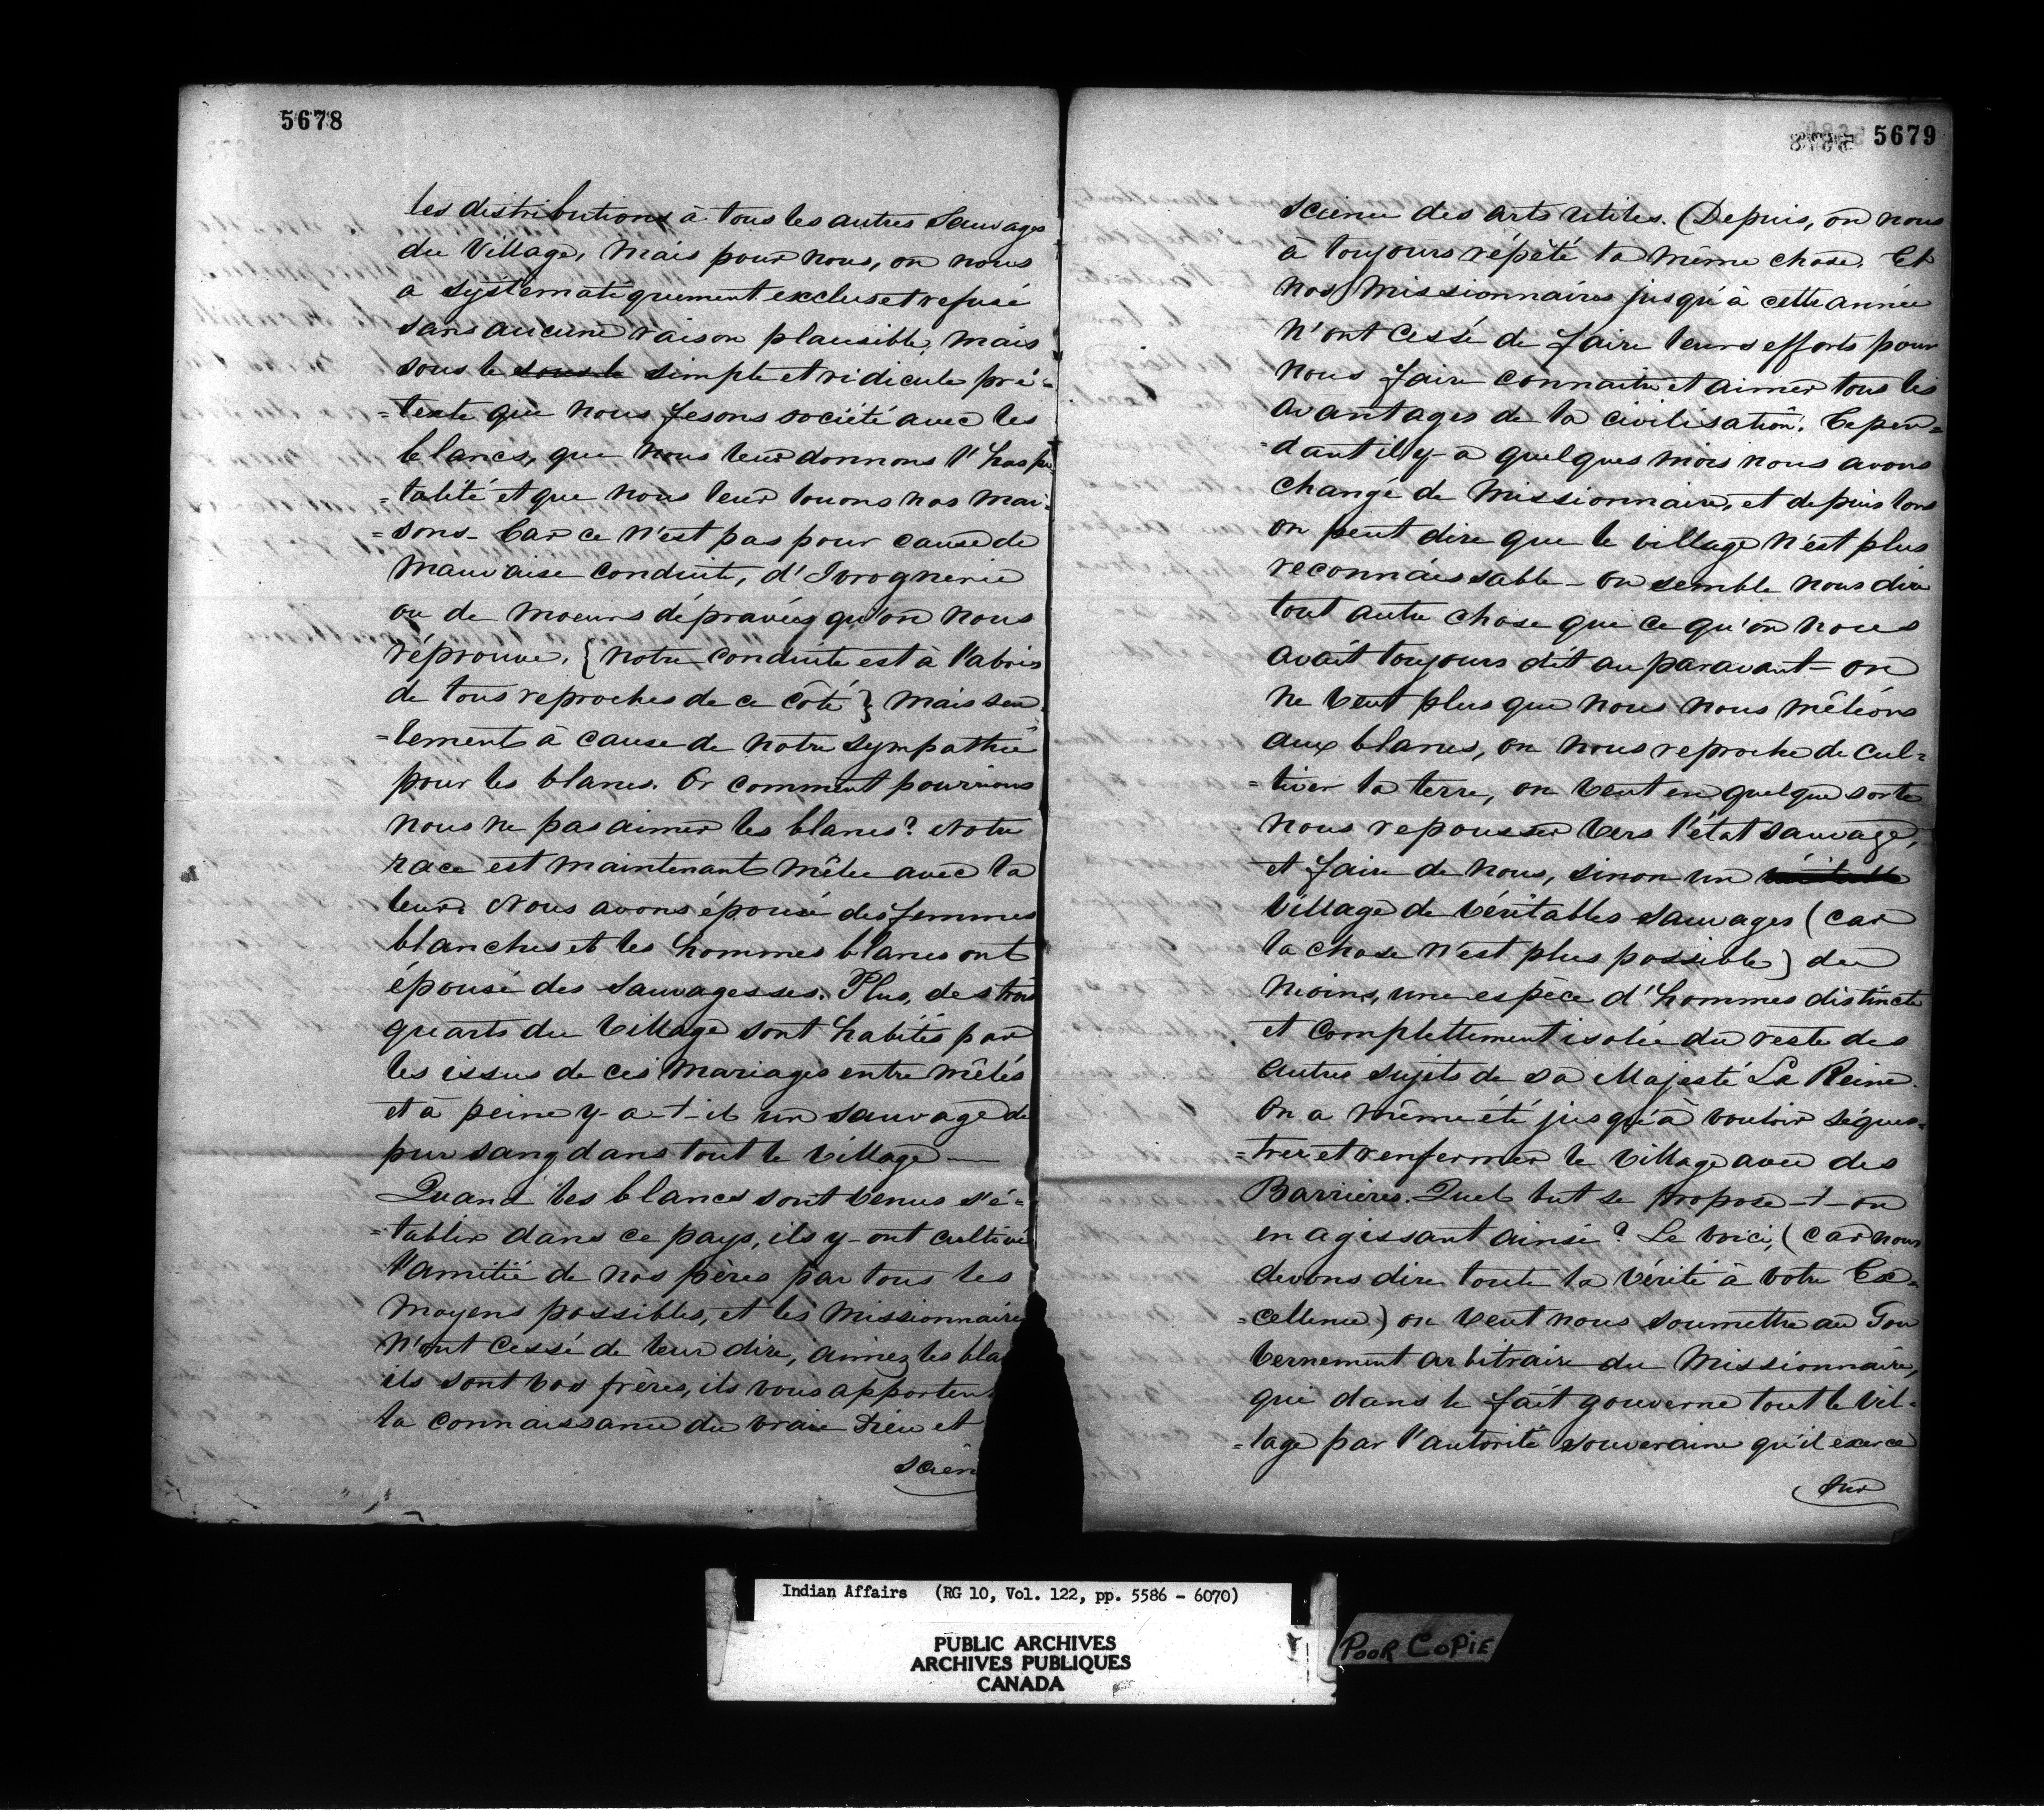 5678
les distributions à tous les autres Sauvages
du Village, mais pour nous, on nous
a systématiquement exclus et refusé
sans aucune raison plausible, mais
sous le sous le simple et ridicule pré-
=texte que nous fesons société avec les
blancs, que nous leur donnons l'hospi
=talité et que nous leur louons nos mai-
=sons - Car ce n'est pas pour cause de
mauvaise conduite, d'Ivrognerie
ou de moeurs dépravées qu'on nous
réprouve, {notre conduite est à l'abris
de tous reproches de ce côté} mais seu
=lement à cause de notre sympathie
pour les blancs. Or comment pourrions
nous ne pas aimer les blancs? Notre
race est maintenant mêlée avec la
leur. Nous avons épousé des femmes
blanches et les hommes blancs ont
épousé des Sauvagesses. Plus, des trois
quarts du Village sont habités par
les issus de ces mariages entremêlés
et à peine y-a-t-il un sauvage de
pur sang dans tout le Village —
Quand les blancs sont venus s'é-
=tablir dans ce pays, ils y-ont cultivé
l'amitié de nos pères par tous les
moyens possibles, et les Missionnaires
n'ont cessé de leur dire, aimez les bla
ils sont vos frères, ils vous apportent
la connaissance du vrai Dieu et
scien
5679
science des arts utiles. (Depuis, on nous
à toujours répété la même chose. Et
nos Missionnaires jusqu'à cette année
n'ont cessé de faire leurs efforts pour
nous faire connaitre et aimer tous les
avantages de la civilisation. Cepen=
=dant il y-a quelques mois nous avons
changé de Missionnaire, et depuis lors
on peut dire que le village n'est plus
reconnaissable - on semble nous dire
tout autre chose que ce qu'on nous
avait toujours dit auparavant - on
ne veut plus que nous nous mêlions
aux blancs, on nous reproche de cul=
=tiver la terre, on veut en quelque sorte
nous repousser vers l'état sauvage,
et faire de nous, sinon un
Village de véritables sauvages (car
la chose n'est plus possible) du
moins, une espèce d'hommes distincte
et complettement isolée du reste des
autres sujets de sa Majesté La Reine.
On a même été jusqu'à vouloir séques=
=trer et renfermer le Village avec des
Barrières. Quel but se propose-t-on
en agissant ainsi? Le voici, (car nous
devons dire toute la vérité à votre Ex=
=cellence) on veut nous soumettre au Gou
vernement arbitraire du Missionnaire,
qui dans le fait gouverne tout le Vil-
=lage par l'autorité souveraine qu'il exerce
sur
Indian Affairs (RG 10, Vol. 122, pp. 5586 - 6070)
PUBLIC ARCHIVES
ARCHIVES PUBLIQUES
CANADA
POOR COPIE